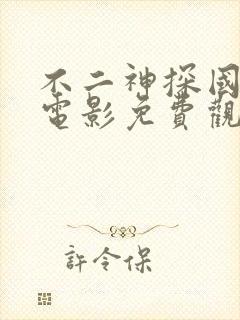 不二神探國
電影免費觀
許令保